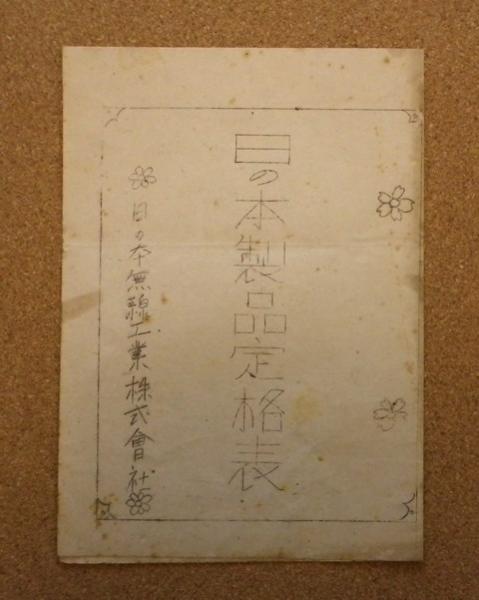 日の本製品定格表
日の本無線工業株式會社